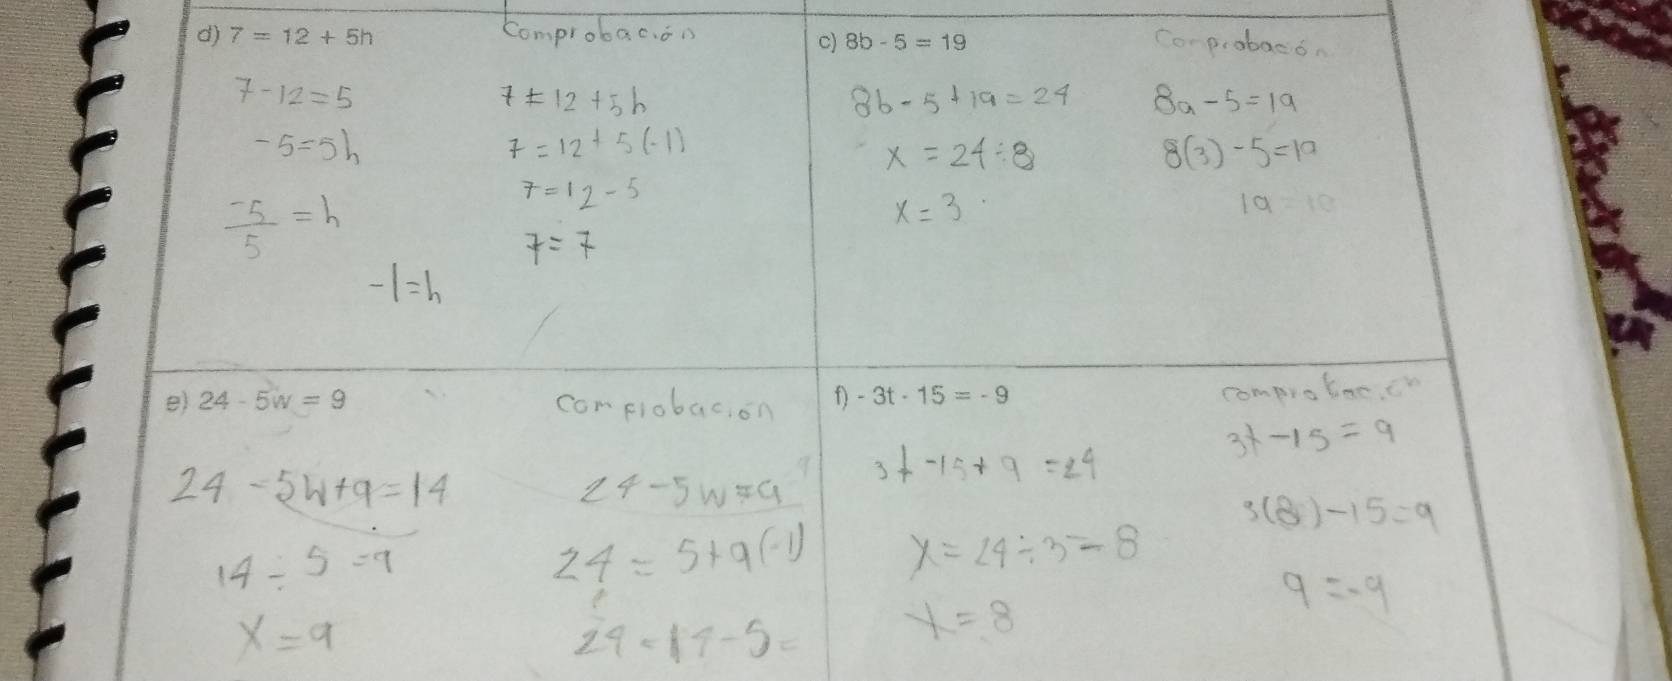 d) 7 = 12 + 5h
Comprobación
7-12=5
-5=5h
-5/5 = h
-1=h
7=12+5h
7=12+5(-1)
7=12-5
7=7
c) 8b - 5 = 19
Comprobación
8b-5+19=24
x=24÷8
x=3
8a-5=19
8(3)-5=19
19=19
e) 24 - 5w = 9
Comprobación
24-5w+9=14
14÷5=9
x=9
24-5w=9
24=5+9(-1)
24=14-5=
f) - 3t - 15 = - 9
3t-15+9=24
x=24÷3=8
x=8
3t-15=9
3(8)-15=9
9=-9